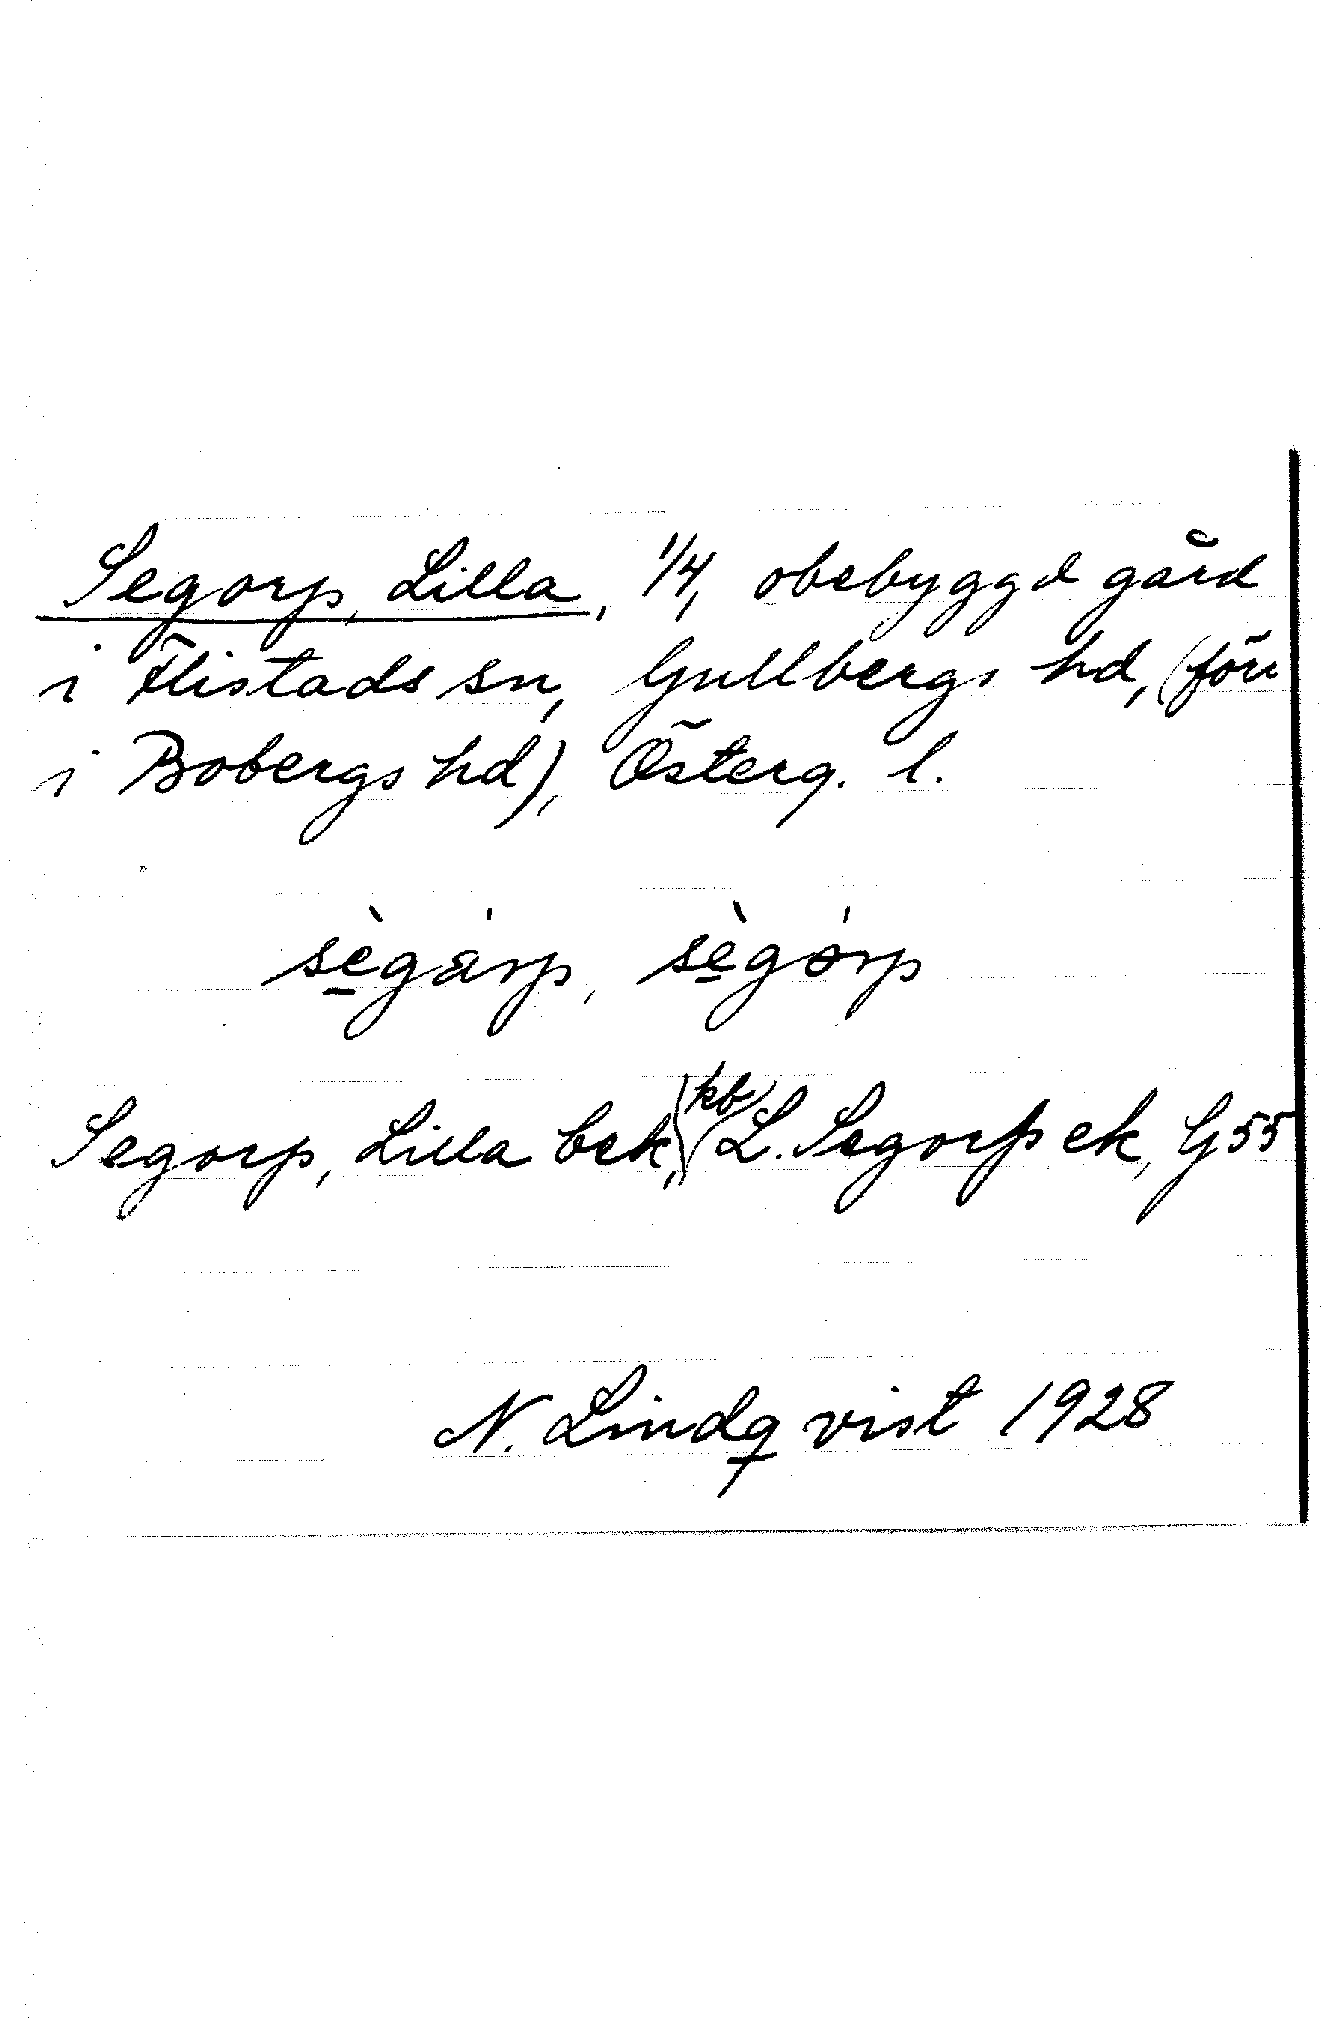 Segorp, Lilla, 1/4, obebyggd gård
i Flistads sn, Gullbergs hd, (förr
i Bobergs hd), Österg. l.
sè̱gárp, sè̱górp
Segorp, Lilla bek, (kb) L. Segorp ek, G55
N. Lindqvist 1928